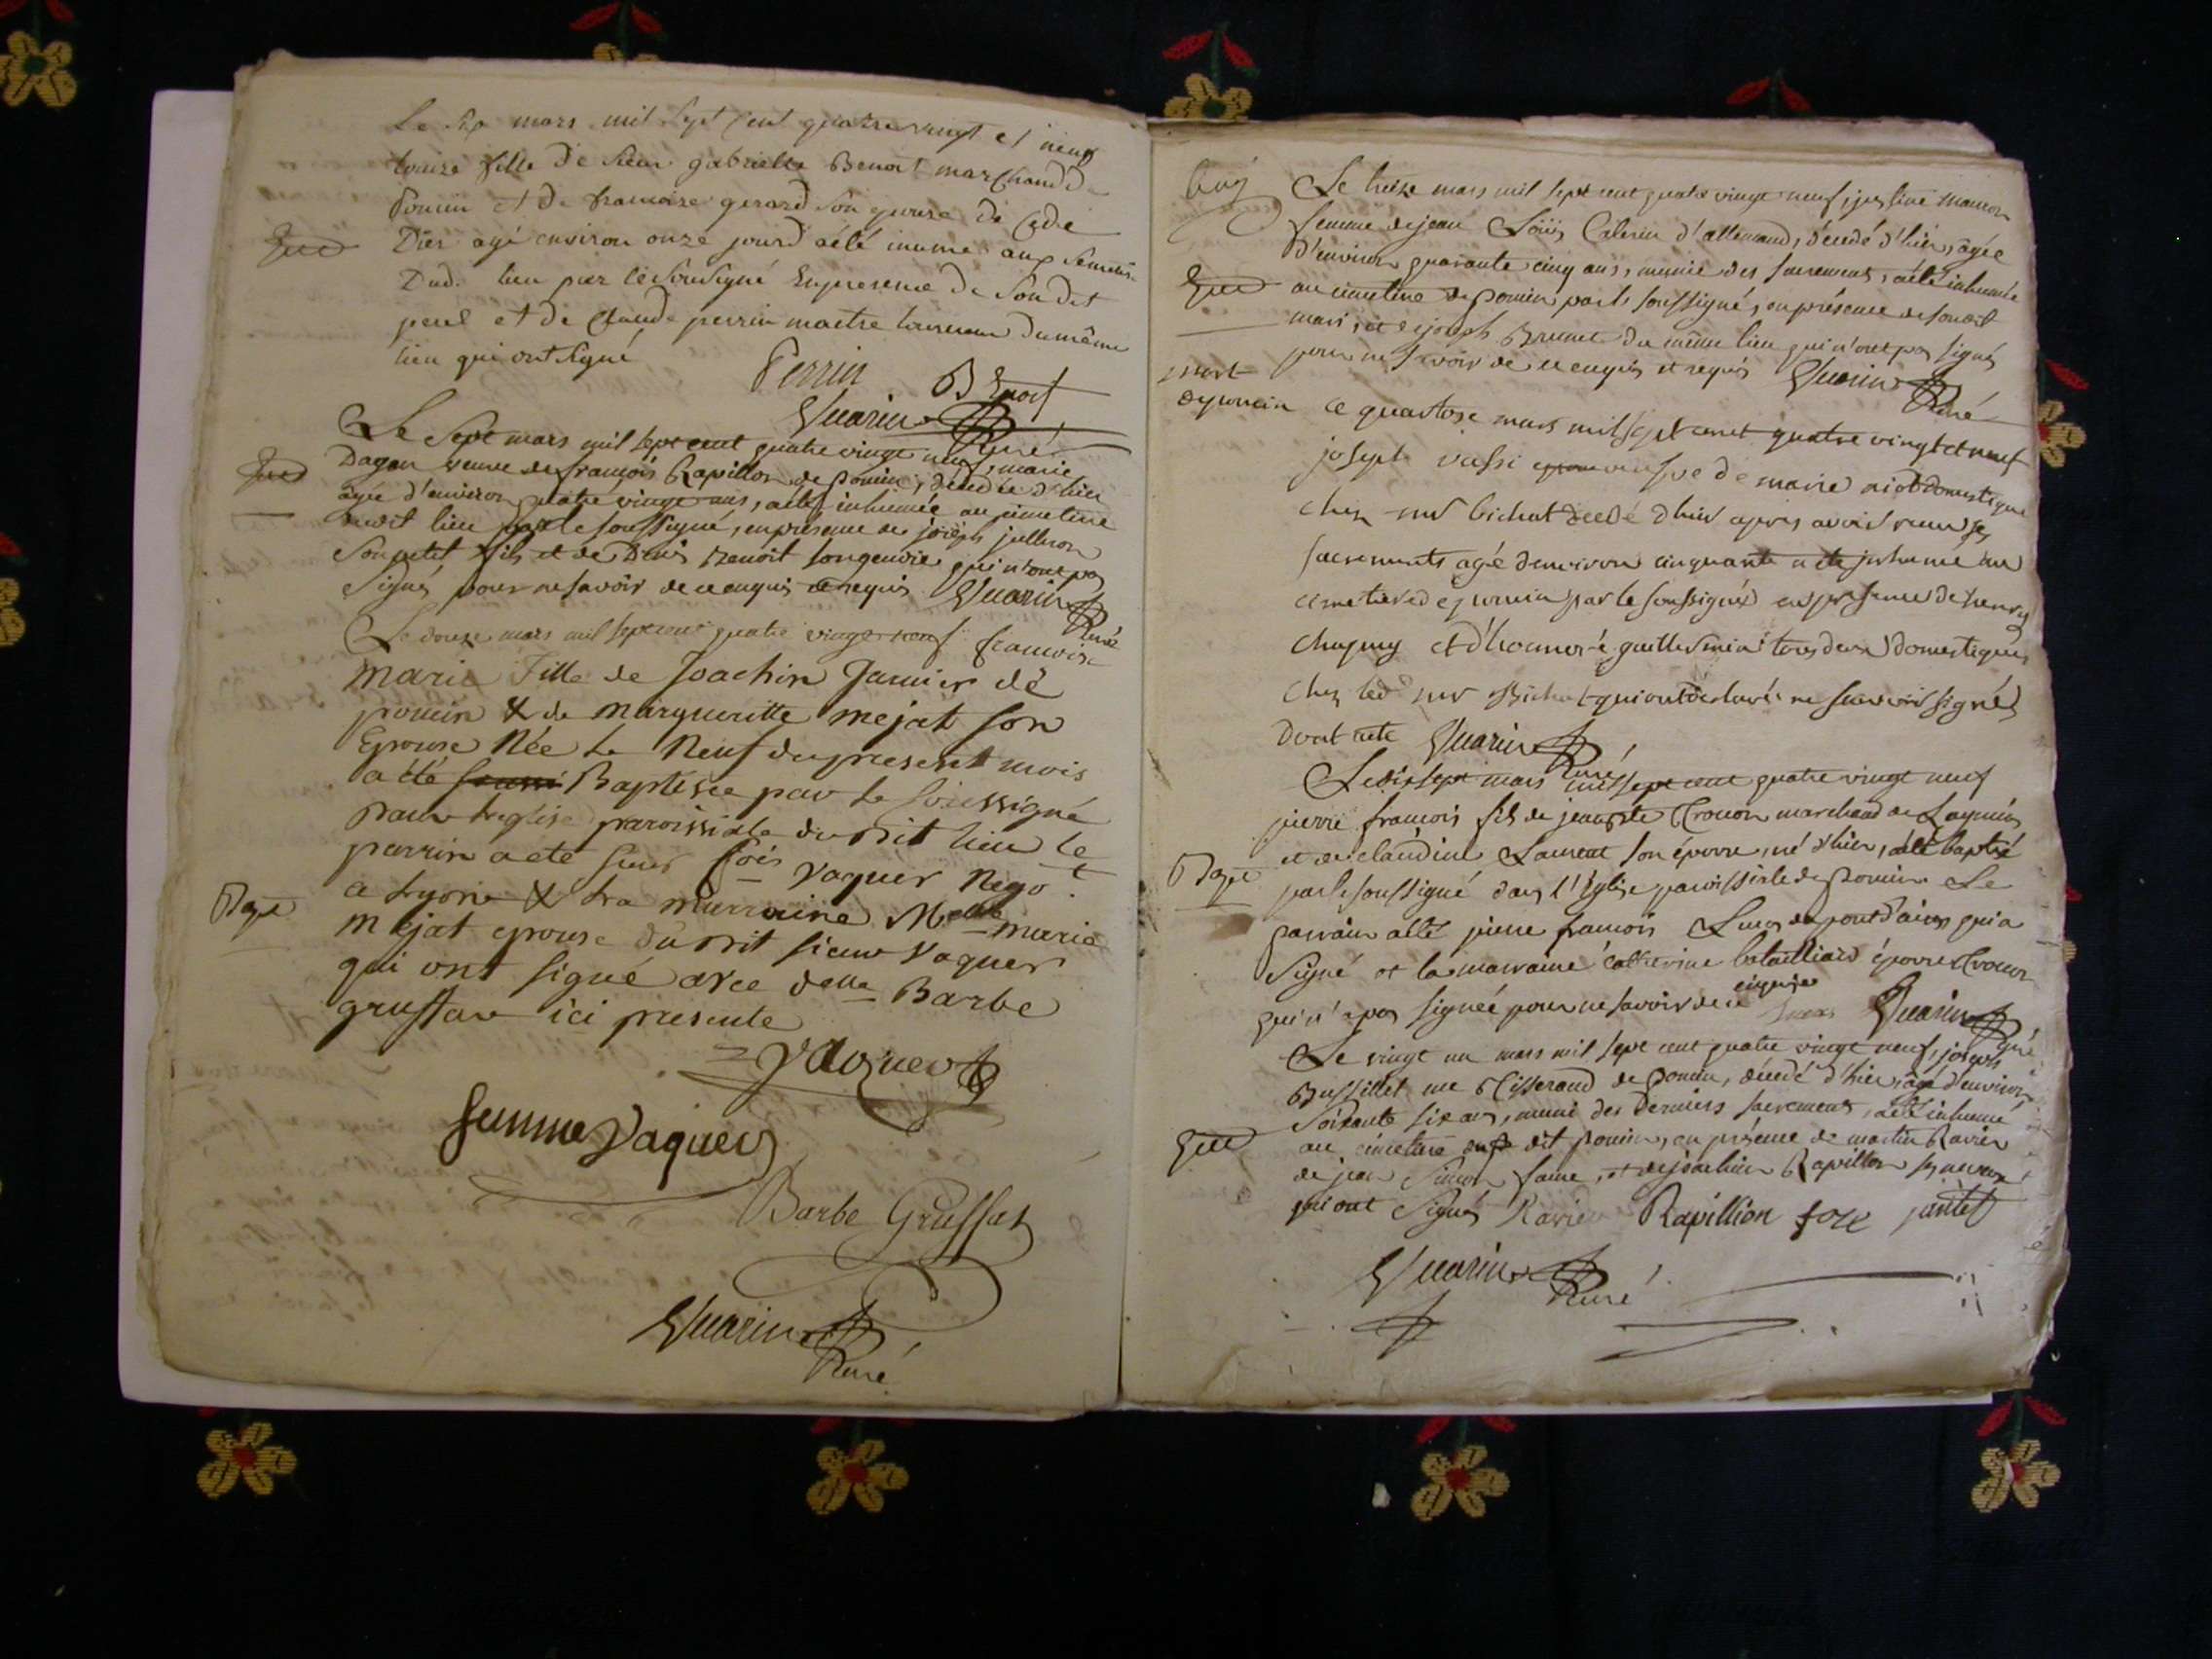 Le six mars mil sept cent quatre vingt et neuf
Louise fille de sieur gabrielle Benoit marchand de
Poncin et de francoise gerard son epouse de cede
Dier agé environ onze jours d aété inumé aux
Dud. lieu par le sousigné En presence de son dit
pere et de Claude perrin maitre du même
lieu qui ont signé
Perrin Benoit
Guarin Curé
Le sept mars mil sept cent quatre vingt neuf, marie
Dagan veuve de françois Ravillon de poncin, décédée d'hier
agée d'environ quatre vingt ans, aété inhumée au cimetiere
dudit lieu par le soussigné, en présence de joseph jullieron
son petit fils et de Denis Benoit qui n'ont pas
signés pour ne savoir de ce enquis et requis Guarin
Curé
Le douze mars mil sept cent quatre vingt neuf francoise
Marie Fille de Joachin Janvier de
poncin & de margueritte mejat son
Epouse Née le Neuf du present mois
a été Baptisée par le soussigné
dans leglise paroissialle du dit lieu le
parrin a eté sieur fois Vaquer Nego.t
a Lyon & La marraine M.elle marie
Mejat epouse du dit sieur Vaquer
qui ont signé avec delle Barbe
grussar ici presente
Bapt
Vaquer
femme Vaquer
Barbe Grussas
Guarin
Curé
Le treize mars mil sept cent quatre vingt neuf,
femme de jean Loüis d'allemand, décédé d'hier, âgée
d'environ quarante cinq ans, munie des sacrements, aété inhumée
au cimetiere de poncin par le soussigné, en présence de son dit
mari, et de joseph Brunet du même lieu qui n'ont pas signés
pour ne savoir de ce enquis et requis Guarin
Curé
mort
de poncin
ce quartose mars mil sept cent quatre vingt et neuf
joseph de marie domestique
chez mr bichat decedé d hier apres avoir recu ses
sacrements agé denviron cinquante a ete inhumé au
cimetiere de poncin par le soussigné en presence de henry
chapuy et d'honnoré tous deux domestiques
chez led mr Bichat qui ont declaré ne scavoir signés
dont acte Guarin
Curé
Le dix sept mars mil sept cent quatre vingt neuf
pierre francois fils de jean marchand de
et de claudine Laurent son épouse, né d'hier, aété baptisé
par le soussigné dans l'Eglise paroissiale de poncin Le
parrain aété pierre francois de pont d'ain qui a
signé et la marraine catherine batailliard épouse
qui n'a pas signée pour ne savoir de ce enquise Guarin
Curé
Bapt
Le vingt un mars mil sept cent quatre vingt neuf, joseph
Bussillet me Tisserand de poncin, décédé d'hier, âgé d'environ
soixante six ans, muni des derniers sacrements, aété inhumé
au cimetiere du dit poncin, en présence de martin Ravier
de jean Simon et de joachin Ravillon ses neveux
qui ont signés Ravier Rapillion
Guarin
Curé